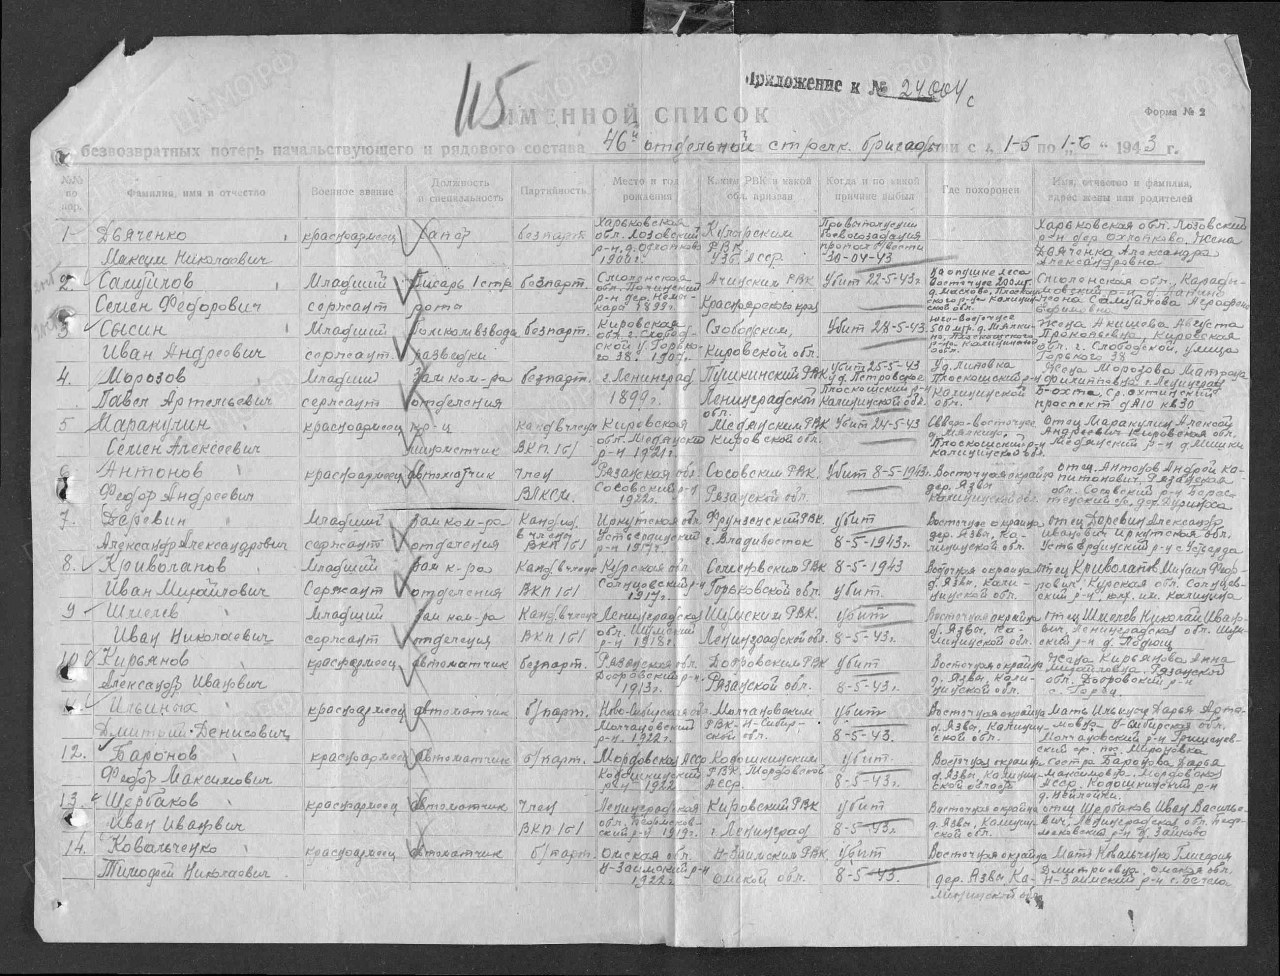 115
Приложение к № 24004с
ИМЕННОЙ СПИСОК
Форма № 2
безвозвратных потерь начальствующего и рядового состава 46й отдельной стрелк. бригады с 1-5 по 1-6 1943 г.
№№ по пор.
Фамилия, имя и отчество
Военное звание
Должность и специальность
Партийность
Место и год рождения
Каким РВК и какой обл. призван
Когда и по какой причине выбыл
Где похоронен
Имя, отчество и фамилия, адрес жены или родителей
1 Дьяченко Максим Николаевич
красноармеец
безпарт.
Харьковская обл. Лозовский р-н
30-04-43
Харьковская обл. Лозовский р-н
Жена Дьяченко Александра Александровна
2 Самуйлов Семен Федорович
Младший сержант
Писарь 1 стр. рота
безпарт.
Смоленская обл. Починский р-н
1899 г.
Ачинским РВК Красноярского края
Убит 22-5-43
3 Сысин Иван Андреевич
Младший сержант
Помкомвзвода разведки
безпарт.
Кировская обл. г. Слободской у. Горького 38 1907 г.
Слободским, Кировской обл.
Убит 28-5-43
Жена Акишева Августа Прокопьевна Кировская обл. г. Слободской, улица Горького 38
4. Морозов Павел Артельевич
Младший сержант
Зам ком-ра отделения
безпарт.
г. Ленинград 1899 г.
Пушкинский РВК Ленинградской обл.
Убит 25-5-43 у д. Петровское Плоскошский р-н Калининской обл.
Плоскошский р-н Калининской обл.
Жена Морозова Матрена Филипповна г. Ленинград Б-Охта, Ср. Охтинский проспект д А10 кв 30
5 Маракулин Семен Алексеевич
красноармеец
Канд. в члены ВКП(б)
Кировская обл. Медянский р-н 1921 г.
Медянским РВК Кировской обл.
Убит 24-5-43
Северо-восточнее
Плоскошский р-н Калининской обл.
отец Маракулин Алексей Андреевич Кировская обл. Медянский р-н
6 Антонов Федор Андреевич
красноармеец
автоматчик
член ВЛКСМ.
Рязанская обл. Сосовский р-н 1922 г.
Сосовский РВК Рязанской обл.
Убит 8-5-1943 г.
Восточная окраина дер. Язвы Калининской обл.
7. Даревин Александр Александрович
Младший сержант
Зам ком-ра отделения
Канд. в члены ВКП(б)
Иркутская обл.
1917 г.
Фрунзенский РВК г. Владивосток
убит 8-5-1943 г.
Восточная окраина дер. Язвы, Калининской обл.
отец Даревин Александр Иванович Иркутская обл.
8. Криволапов Иван Михайлович
Младший Сержант
Зам к-ра отделения
Канд. в члены ВКП(б)
Курская обл. Солнцевский р-н 1917 г.
Семеновским РВК Горьковской обл.
8-5-1943 убит.
Восточная окраина д. Язвы, Калининской обл.
отец Криволапов Михаил Курская обл. Солнцевский р-н кол. им. Калинина
9 Шмелев Иван Николаевич
Младший сержант
Зам ком-ра отделения
Канд. в члены ВКП(б)
Ленинградская обл. Шумский р-н 1918 г.
Шумским РВК. Ленинградской обл.
убит 8-5-43 г.
Восточная окраина д. Язвы, Калининской обл.
отец Шмелев Николай Иванович, Ленинградская обл. Шумский р-н
10 Кирьянов Александр Иванович
красноармеец
автоматчик
безпарт.
Рязанская обл. Бобровский р-н 1913 г.
Бобровским РВК Рязанской обл.
убит 8-5-43 г.
Восточная окраина д. Язвы, Калининской обл.
Жена Кирьянова Анна Михайловна, Рязанской обл. Бобровский р-н
11 Ильиных Дмитрий Денисович
красноармеец
автоматчик
б/парт.
Ново-Сибирская обл. Молчановский р-н. 1922 г.
Молчановским РВК-Н-Сибирской обл.
убит 8-5-43.
Восточная окраина д. Язвы, Калининской обл.
Мать Ильиных Дарья
12. Баронов Федор Максимович
красноармеец
автоматчик
б/парт.
Мордовская АССР Кадошкинский р-н 1922 г.
Кадошкинским РВК. Мордовской АССР.
убит 8-5-43 г.
Восточная окраина д. Язвы, Калининской области
Сестра Баронова Дарья Максимовна. Мордовская АССР. Кадошкинский р-н
13. Щербаков Иван Иванович
красноармеец
автоматчик
член ВКП(б)
Ленинградская обл.
1919 г.
Кировский РВК г. Ленинград
убит 8-5-43 г.
Восточная окраина д. Язвы, Калининской обл.
отец Щербаков Иван Васильевич, Ленинградская обл.
14. Ковальченко Тимофей Николаевич
красноармеец
автоматчик
б/парт.
Омская обл. Н-Заимский р-н 1922 г.
Н-Заимским РВК Омской обл.
убит 8-5-43.
Восточная окраина дер. Язвы Калининской обл.
Мать Ковальченко
Дмитриевна, Омская обл. Н-Заимский р-н